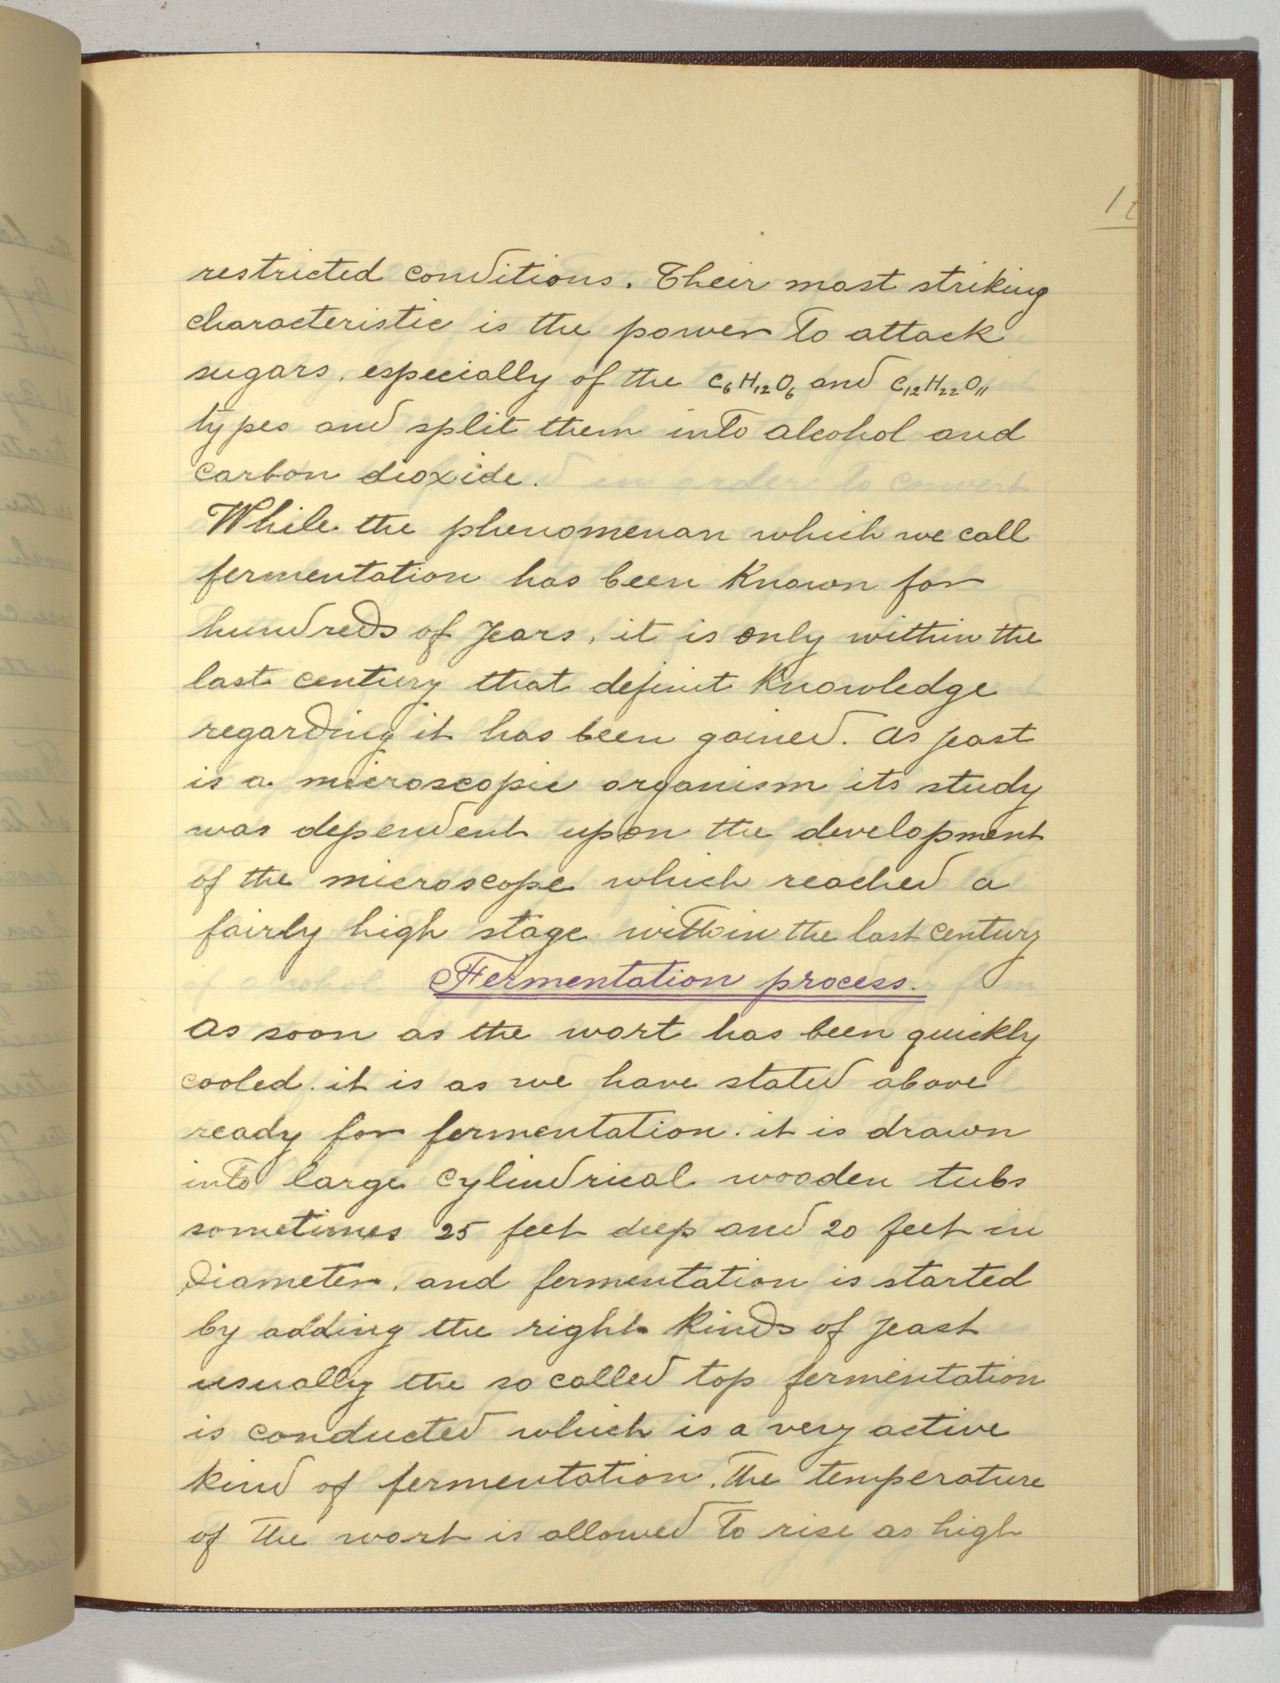 restricted conditions. Their most striking
characteristic is the power to attack
sugars, especially of the C₆H₁₂O₆ and C₁₂H₂₂O₁₁
types and split them into alcohol and
carbon dioxide.
While the phenomenon which we call
fermentation has been known for
hundreds of years, it is only within the
last century that definit knowledge
regarding it has been gained. As yeast
is a microscopic organism its study
was dependent upon the development
of the microscope which reached a
fairly high stage within the last century
Fermentation process.
As soon as the wort has been quickly
cooled. it is as we have stated above
ready for fermentation. it is drawn
into large cylindrical wooden tubs
sometimes 25 feet deep and 20 feet in
diameter, and fermentation is started
by adding the right kinds of yeast
usually the so called top fermentation
is conducted which is a very active
kind of fermentation. The temperature
of the wort is allowed to rise as high